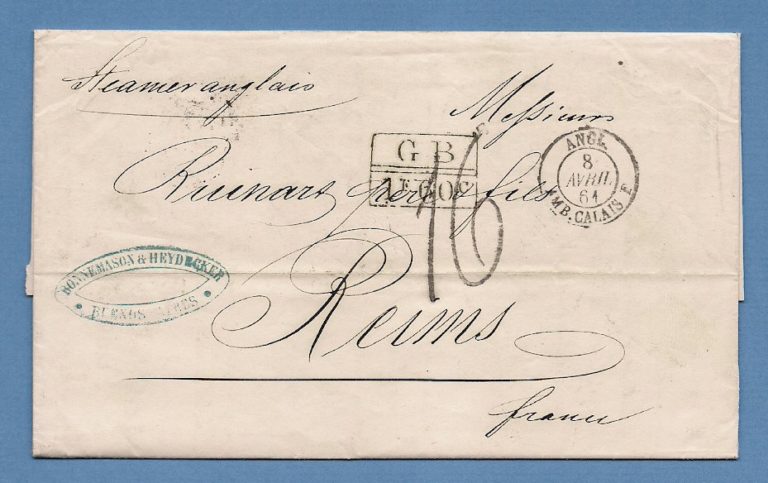 Steamer anglais
Messieurs
G B
1F60c
ANGL.
8
AVRIL
61
AMB. CALAIS E
Ruinart père & fils
16
BONNEMASON & HEYDECKER
BUENOS AIRES
Reims
france